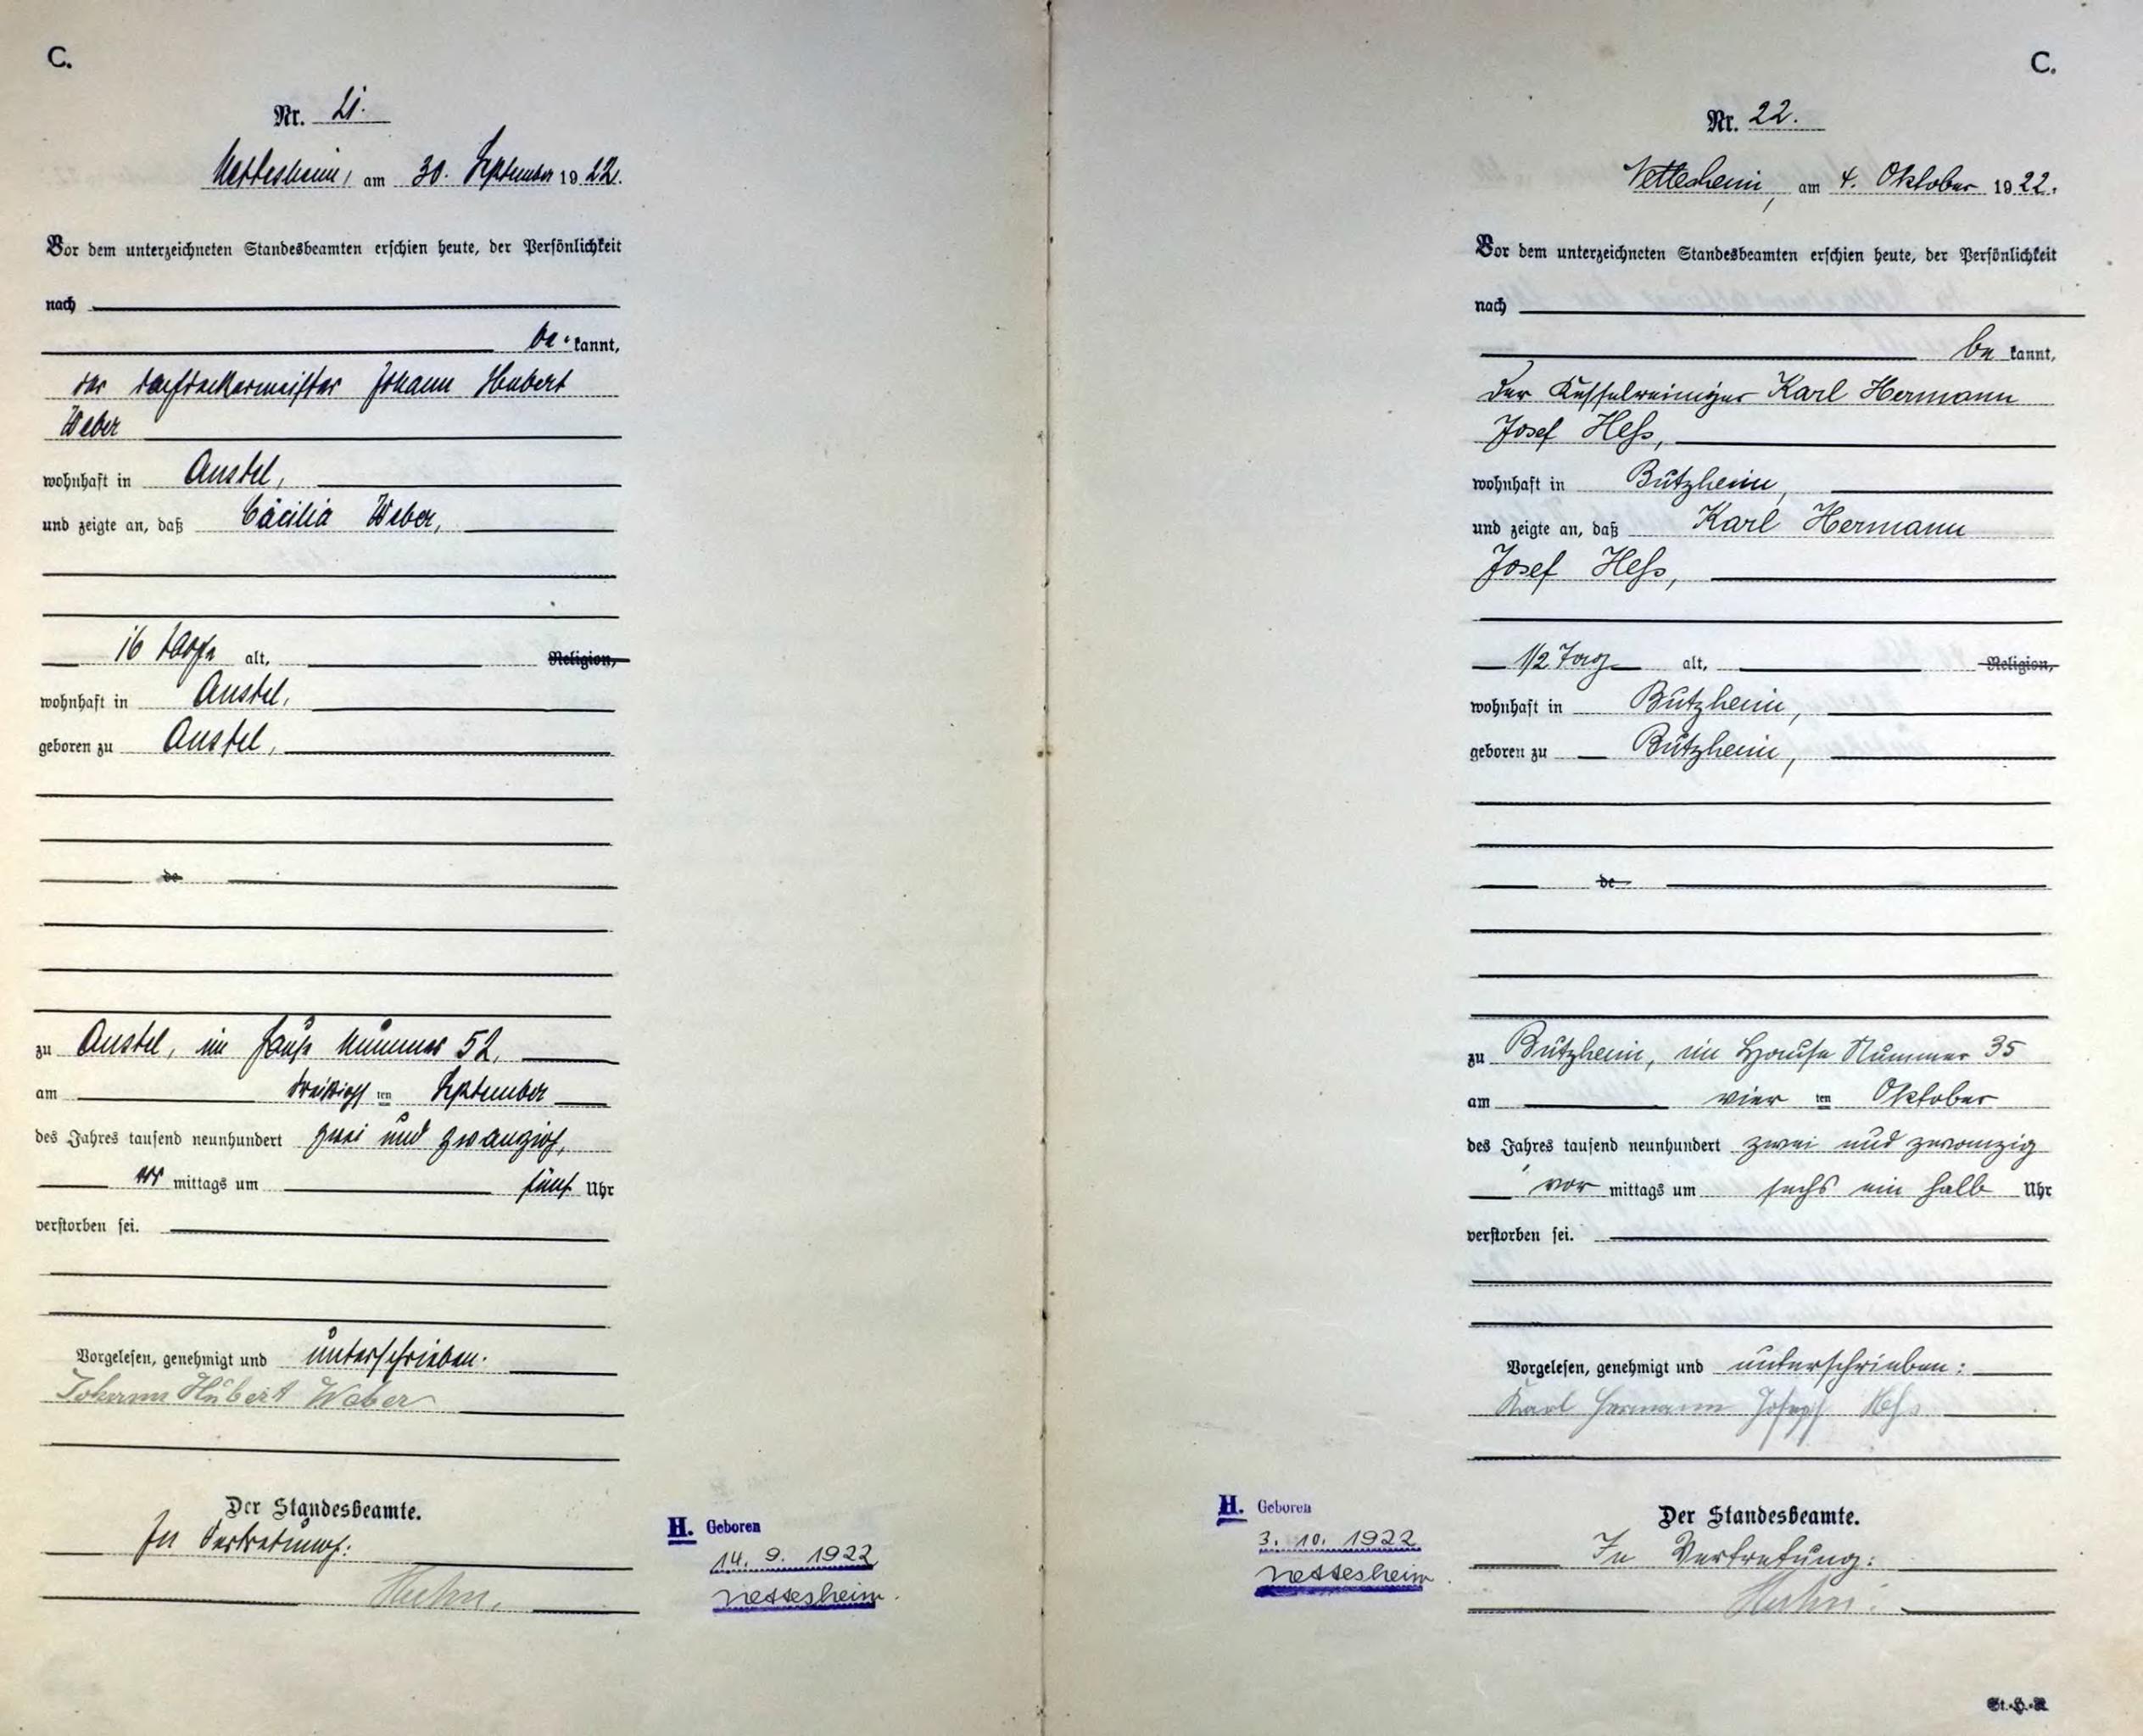 C.
Nr. 21.
Nettesheim, am 30. September 1922.
Vor dem unterzeichneten Standesbeamten erschien heute, der Persönlichkeit
nach
be kannt,
der Dachdeckermeister Johann Hubert
Weber
wohnhaft in Anstel,
und zeigte an, daß Cäcilia Weber,
16 Tage alt, Religion,
wohnhaft in Anstel,
geboren zu Anstel,
de
zu Anstel, im Hause Nummer 52,
am dreißig ten September
des Jahres tausend neunhundert zwei und zwanzig,
vor mittags um fünf Uhr
verstorben sei.
Vorgelesen, genehmigt und unterschrieben.
Johann Hubert Weber
Der Standesbeamte.
In Vertretung:
H. Geboren
14. 9. 1922
Nettesheim.
C.
Nr. 22.
Nettesheim, am 4. Oktober 1922.
Vor dem unterzeichneten Standesbeamten erschien heute, der Persönlichkeit
nach
be kannt,
der Kesselreiniger Karl Hermann
Josef Heß,
wohnhaft in Bützheim,
und zeigte an, daß Karl Hermann
Josef Heß,
1/2 Tag alt, Religion,
wohnhaft in Bützheim,
geboren zu Bützheim,
de
zu Bützheim, im Hause Nummer 35
am vier ten Oktober
des Jahres tausend neunhundert zwei und zwanzig
vor mittags um sechs ein halb Uhr
verstorben sei.
Vorgelesen, genehmigt und unterschrieben:
Karl Hermann Joseph Heß
Der Standesbeamte.
In Vertretung:
H. Geboren
3. 10. 1922
Nettesheim.